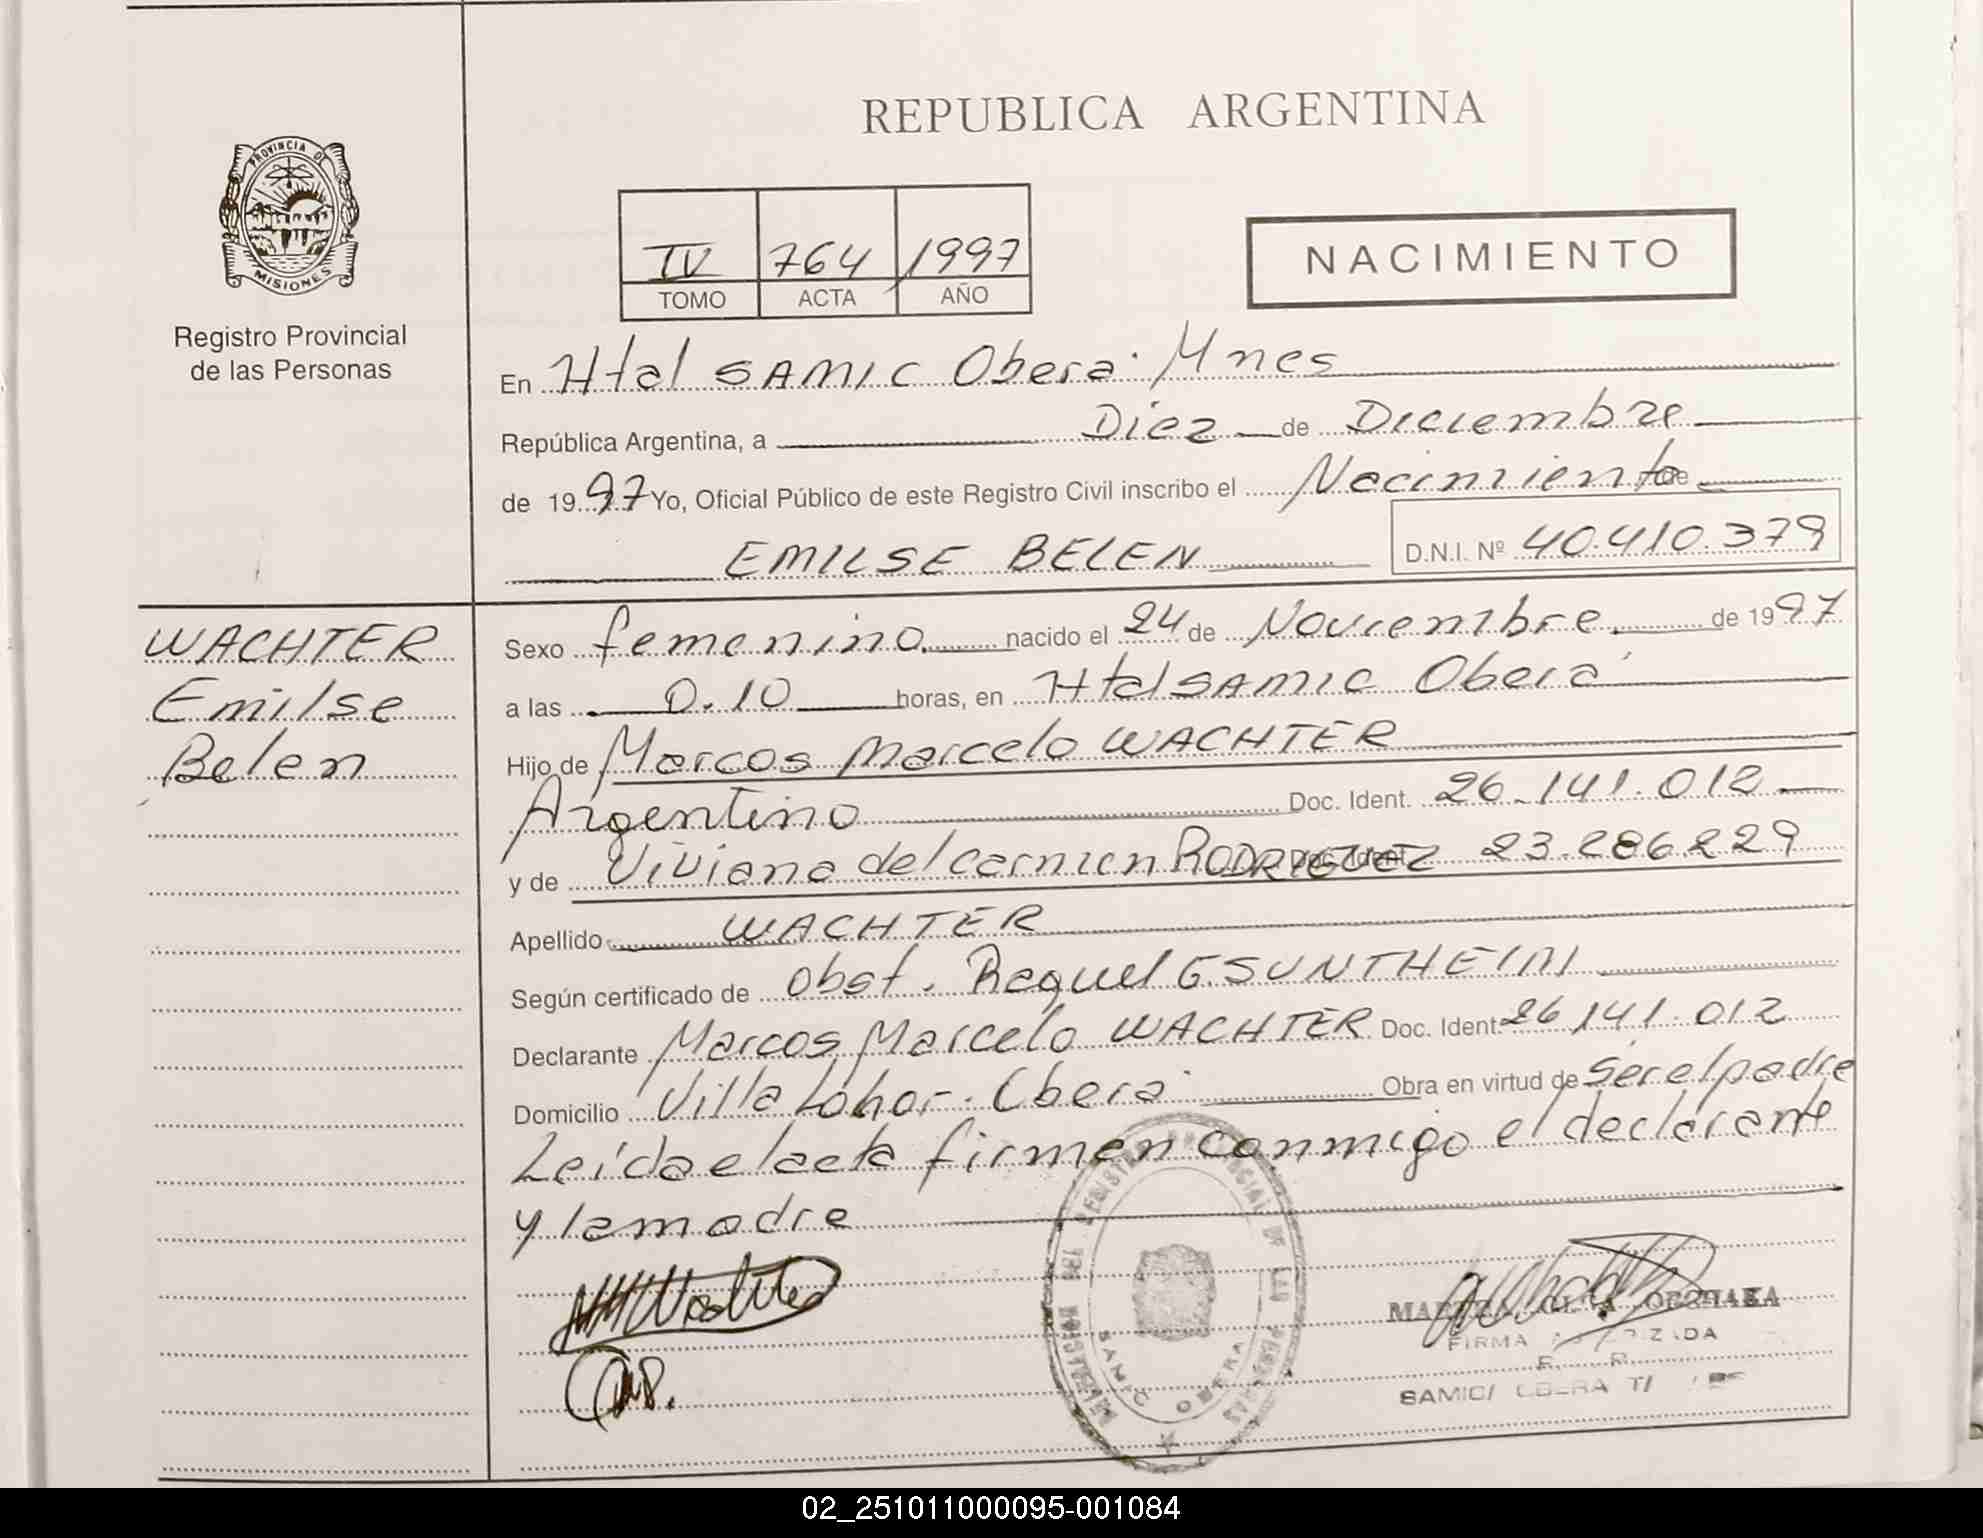 REPUBLICA ARGENTINA
PROVINCIA DE
MISIONES
Registro Provincial
de las Personas
IV 764 1997
TOMO ACTA AÑO
NACIMIENTO
En Htal SAMIC Oberá Mnes
República Argentina, a Diez de Diciembre
de 1997 Yo, Oficial Público de este Registro Civil inscribo el Nacimiento de
EMILSE BELEN D.N.I. Nº 40.410.379
WACHTER
Emilse
Belen
Sexo femenino nacido el 24 de Noviembre de 1997
a las 0.10 horas, en Htal SAMIC Oberá
Hijo de Marcos Marcelo WACHTER
Argentino Doc. Ident. 26.141.012
y de Viviana del Carmen RODRIGUEZ 23.286.229
Apellido WACHTER
Según certificado de Obst. Raquel G. SUNTHEIM
Declarante Marcos Marcelo WACHTER Doc. Ident 26141.012
Domicilio Villa Oberá Obra en virtud de ser el padre
Leída el acta firman conmigo el declarante
y la madre
SAMIC OBERA
FIRMA
SAMIC/ OBERA
02_251011000095-001084